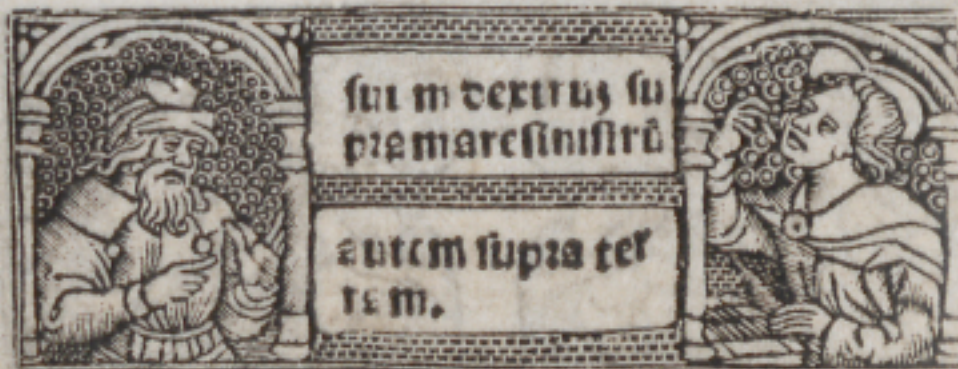 suū dextrūꝫ su
pra mare sinistrū
autem supra ter
ram.